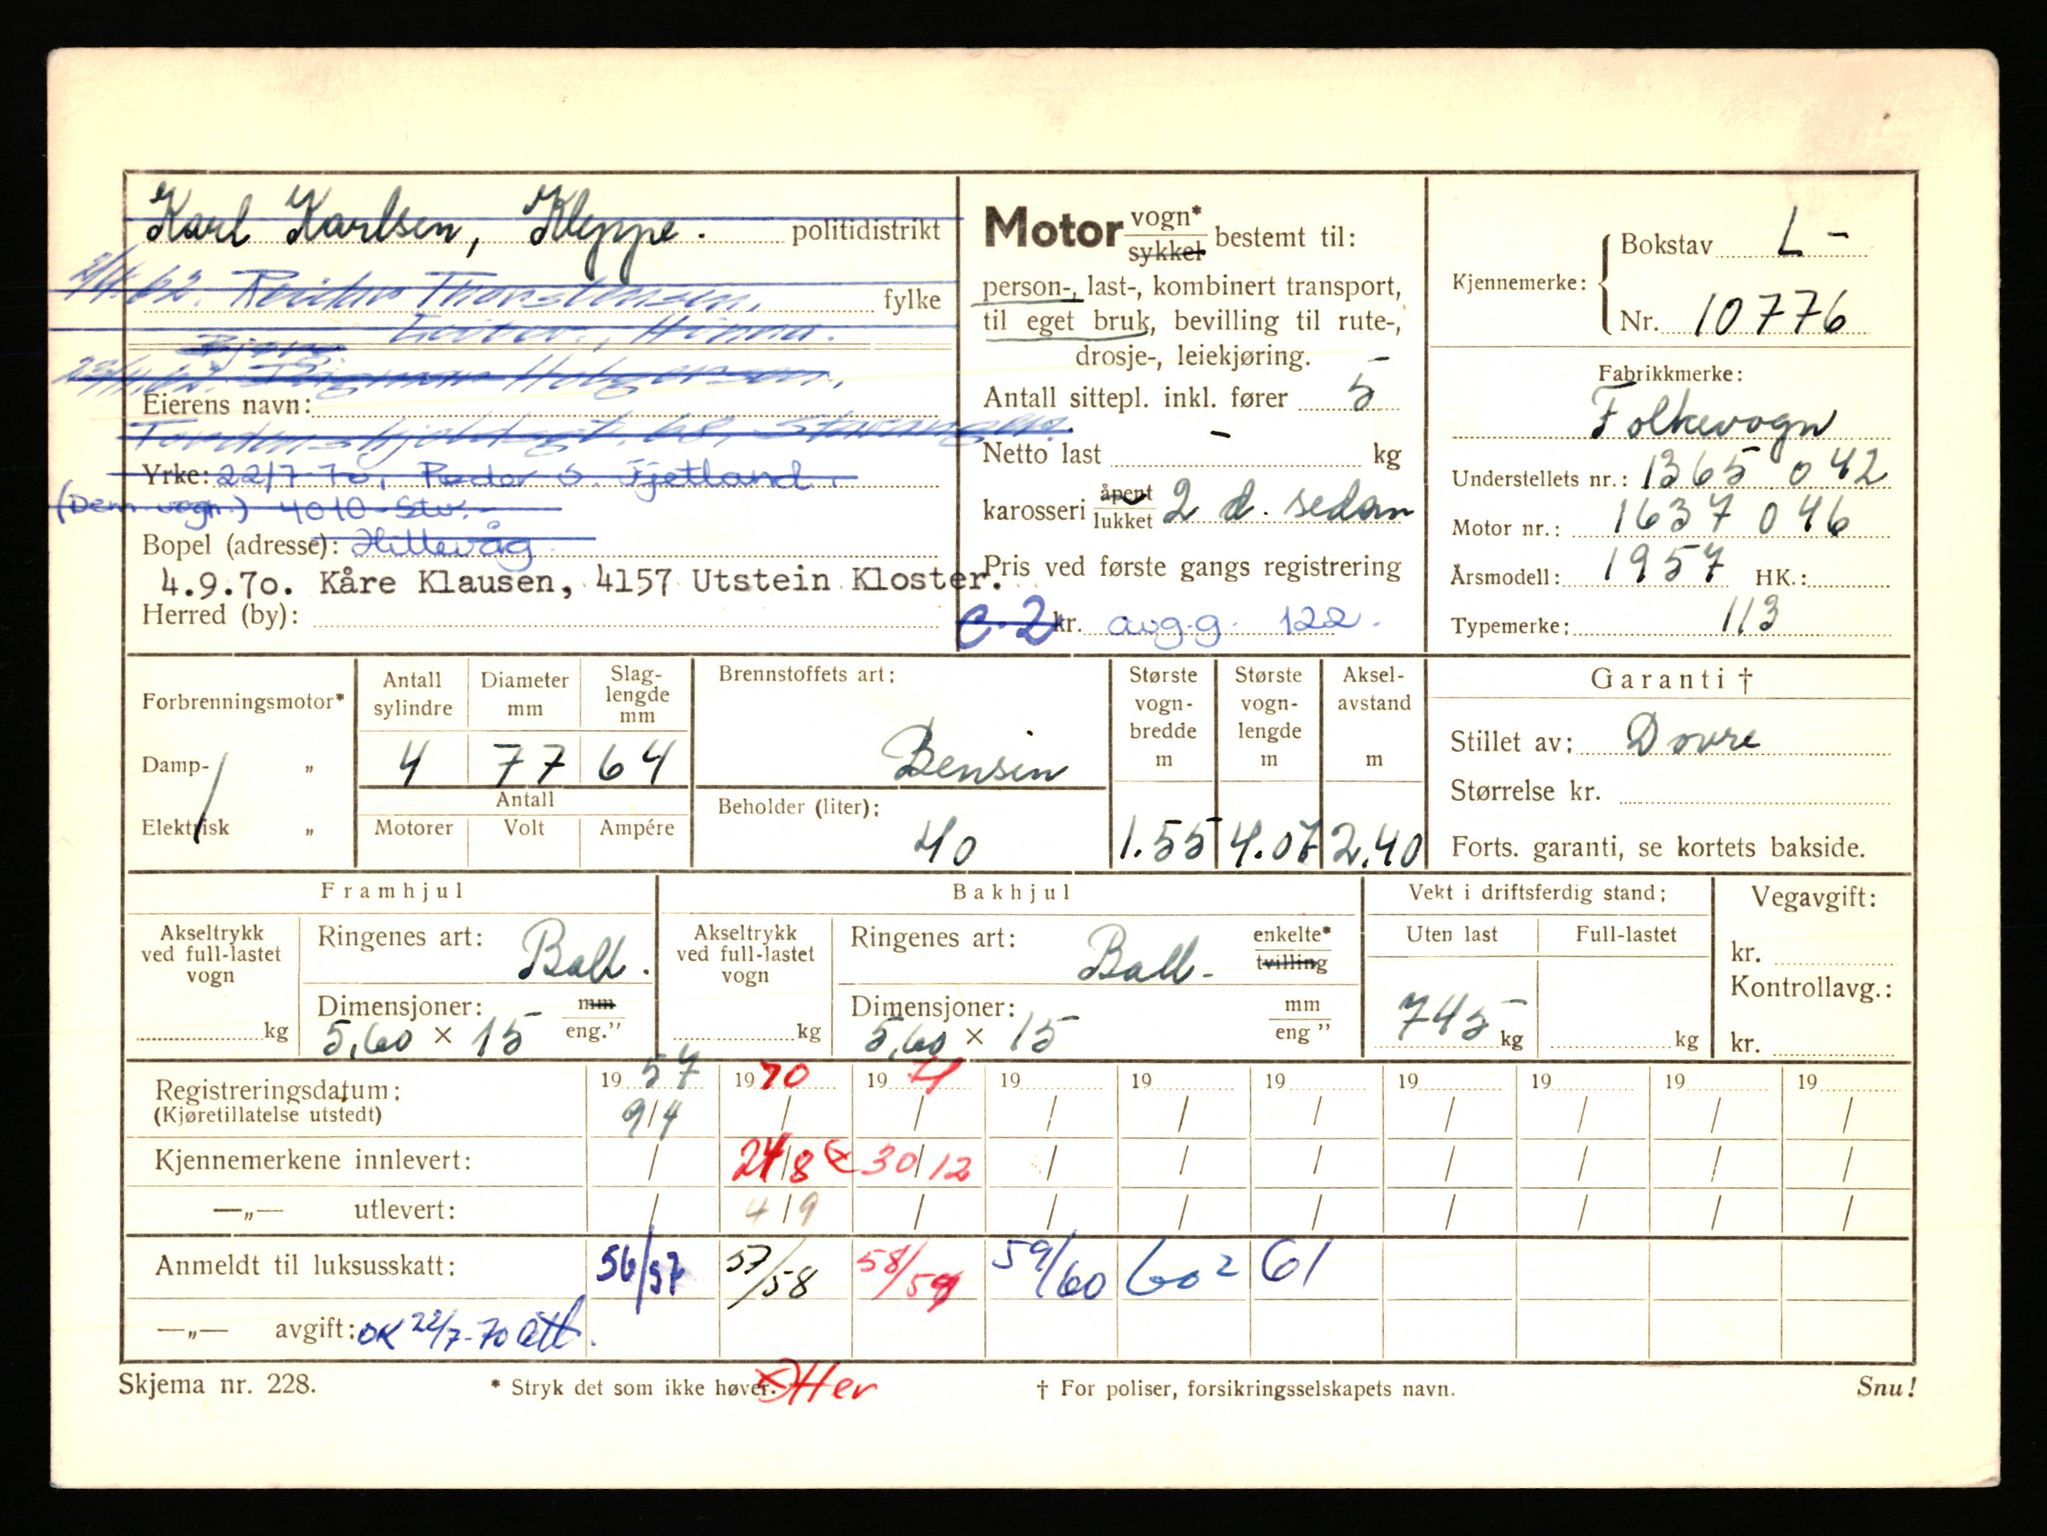 Karl Karlsen, Kleppe. politidistrikt
2/4.62. Reidar Thorstensen, fylke
Hinna.
Holgersen,
Eierens navn:
Tordenskjoldsgt. 68, Stavanger.
Yrke: 22/7 70, Peder O. Tjetland.
(Dem. vogn.) 4010 Stv.
Bopel (adresse): Hillevåg
4.9.70. Kåre Klausen, 4157 Utstein Kloster.
Herred (by):
Motor vogn* sykkel bestemt til:
person-, last-, kombinert transport,
til eget bruk, bevilling til rute-,
drosje-, leiekjøring.
Antall sittepl. inkl. fører 5
Netto last - kg
karosseri åpent lukket 2 d. sedan
Pris ved første gangs registrering
c.2 kr. avg.g. 122.
Kjennemerke: Bokstav L-
Nr. 10776
Fabrikkmerke:
Folkevogn
Understellets nr.: 1365 042
Motor nr.: 1637 046
Årsmodell: 1957 HK.:
Typemerke: 113
Forbrenningsmotor*
Damp- „
Elektrisk „
Antall sylindre
Diameter mm
Slag-lengde mm
4 77 64
Antall
Motorer Volt Ampére
Brennstoffets art:
Bensin
Beholder (liter):
40
Største vogn-bredde m
Største vogn-lengde m
Aksel-avstand m
1.55 4.07 2.40
Garanti †
Stillet av: Dovre
Størrelse kr.
Forts. garanti, se kortets bakside.
Framhjul
Akseltrykk ved full-lastet vogn
kg
Ringenes art: Ball.
Dimensjoner: mm
5,60 × 15 eng."
Bakhjul
Akseltrykk ved full-lastet vogn
kg
Ringenes art: Ball- enkelte* tvilling
Dimensjoner: mm
5,60 × 15 eng "
Vekt i driftsferdig stand:
Uten last Full-lastet
745 kg kg
Vegavgift:
kr.
Kontrollavg.:
kr.
Registreringsdatum: 1957 1970 1971 19 19 19 19 19 19 19
(Kjøretillatelse utstedt) 9/4 / / / / / / / / /
Kjennemerkene innlevert: / 24/8 30/12 / / / / / / /
—„— utlevert: / 4/9 / / / / / / / /
Anmeldt til luksusskatt: 56/57 57/58 58/59 59/60 60² 61
—„— avgift: OK 22/7-70
Skjema nr. 228.
* Stryk det som ikke høver.
Her
† For poliser, forsikringsselskapets navn.
Snu!